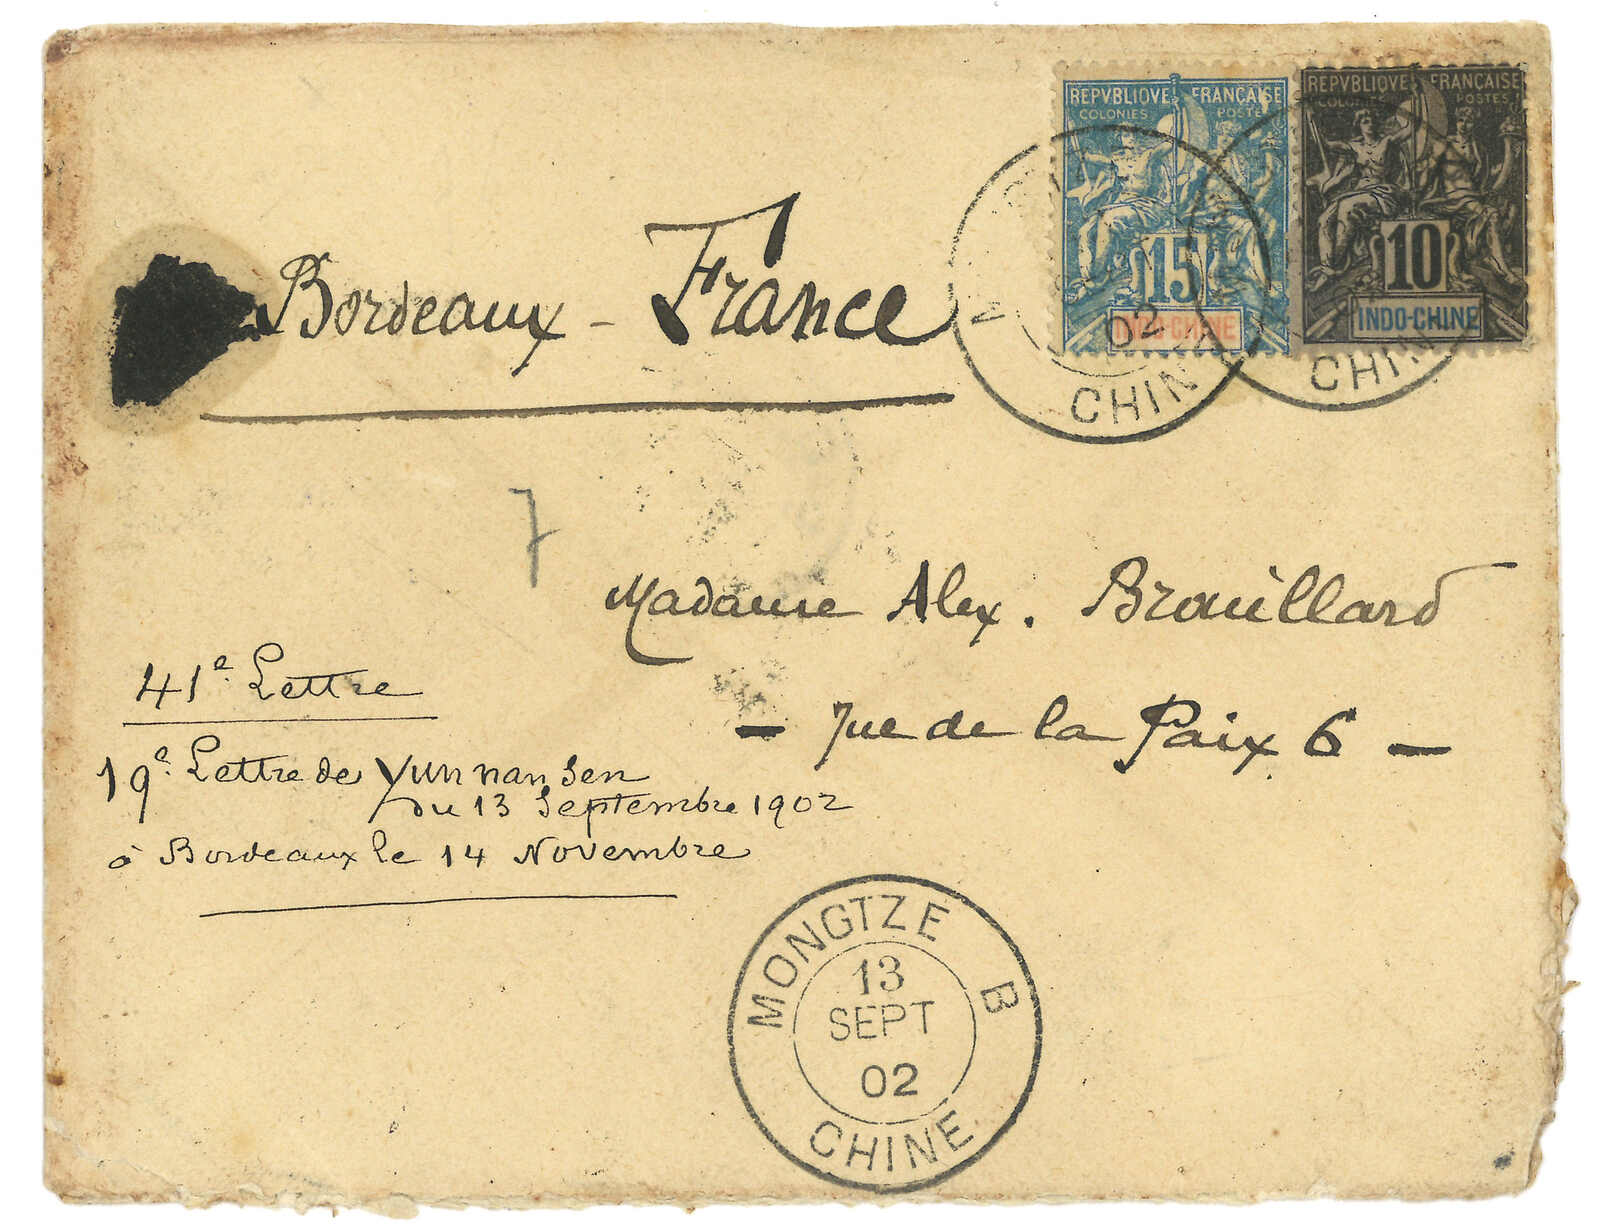 REPVBLIQVE FRANÇAISE
COLONIES POSTES
15
INDO-CHINE
REPVBLIQVE FRANÇAISE
COLONIES POSTES
10
INDO-CHINE
02
CHINE
CHINE
Bordeaux - France
7
Madame Alex. Brouillard
- rue de la Paix 6 -
41e Lettre
19e Lettre de Yunnan Sen
du 13 Septembre 1902
à Bordeaux le 14 Novembre
MONGTZE B
13
SEPT
02
CHINE